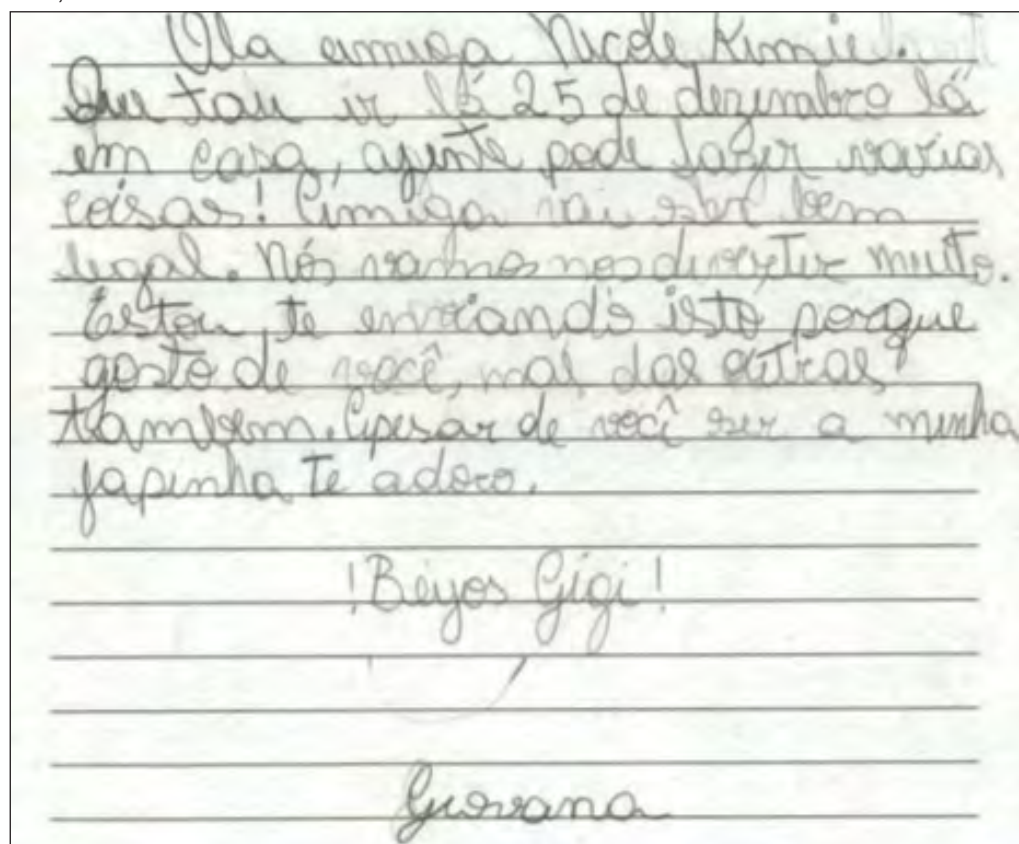 Ola amiga Nicole Kimie.
Que tau ir lá 25 de dezembro lá
em casa, agente pode fazer varias
coisas! Amiga vai ser bem
legal. Nós vamos nos divertir muito.
Estou te enviando isto porque
gosto de você, mas das outras
tambem. Apesar de você ser a minha
japinha te adoro.
! Beijos Gigi !
Giovana